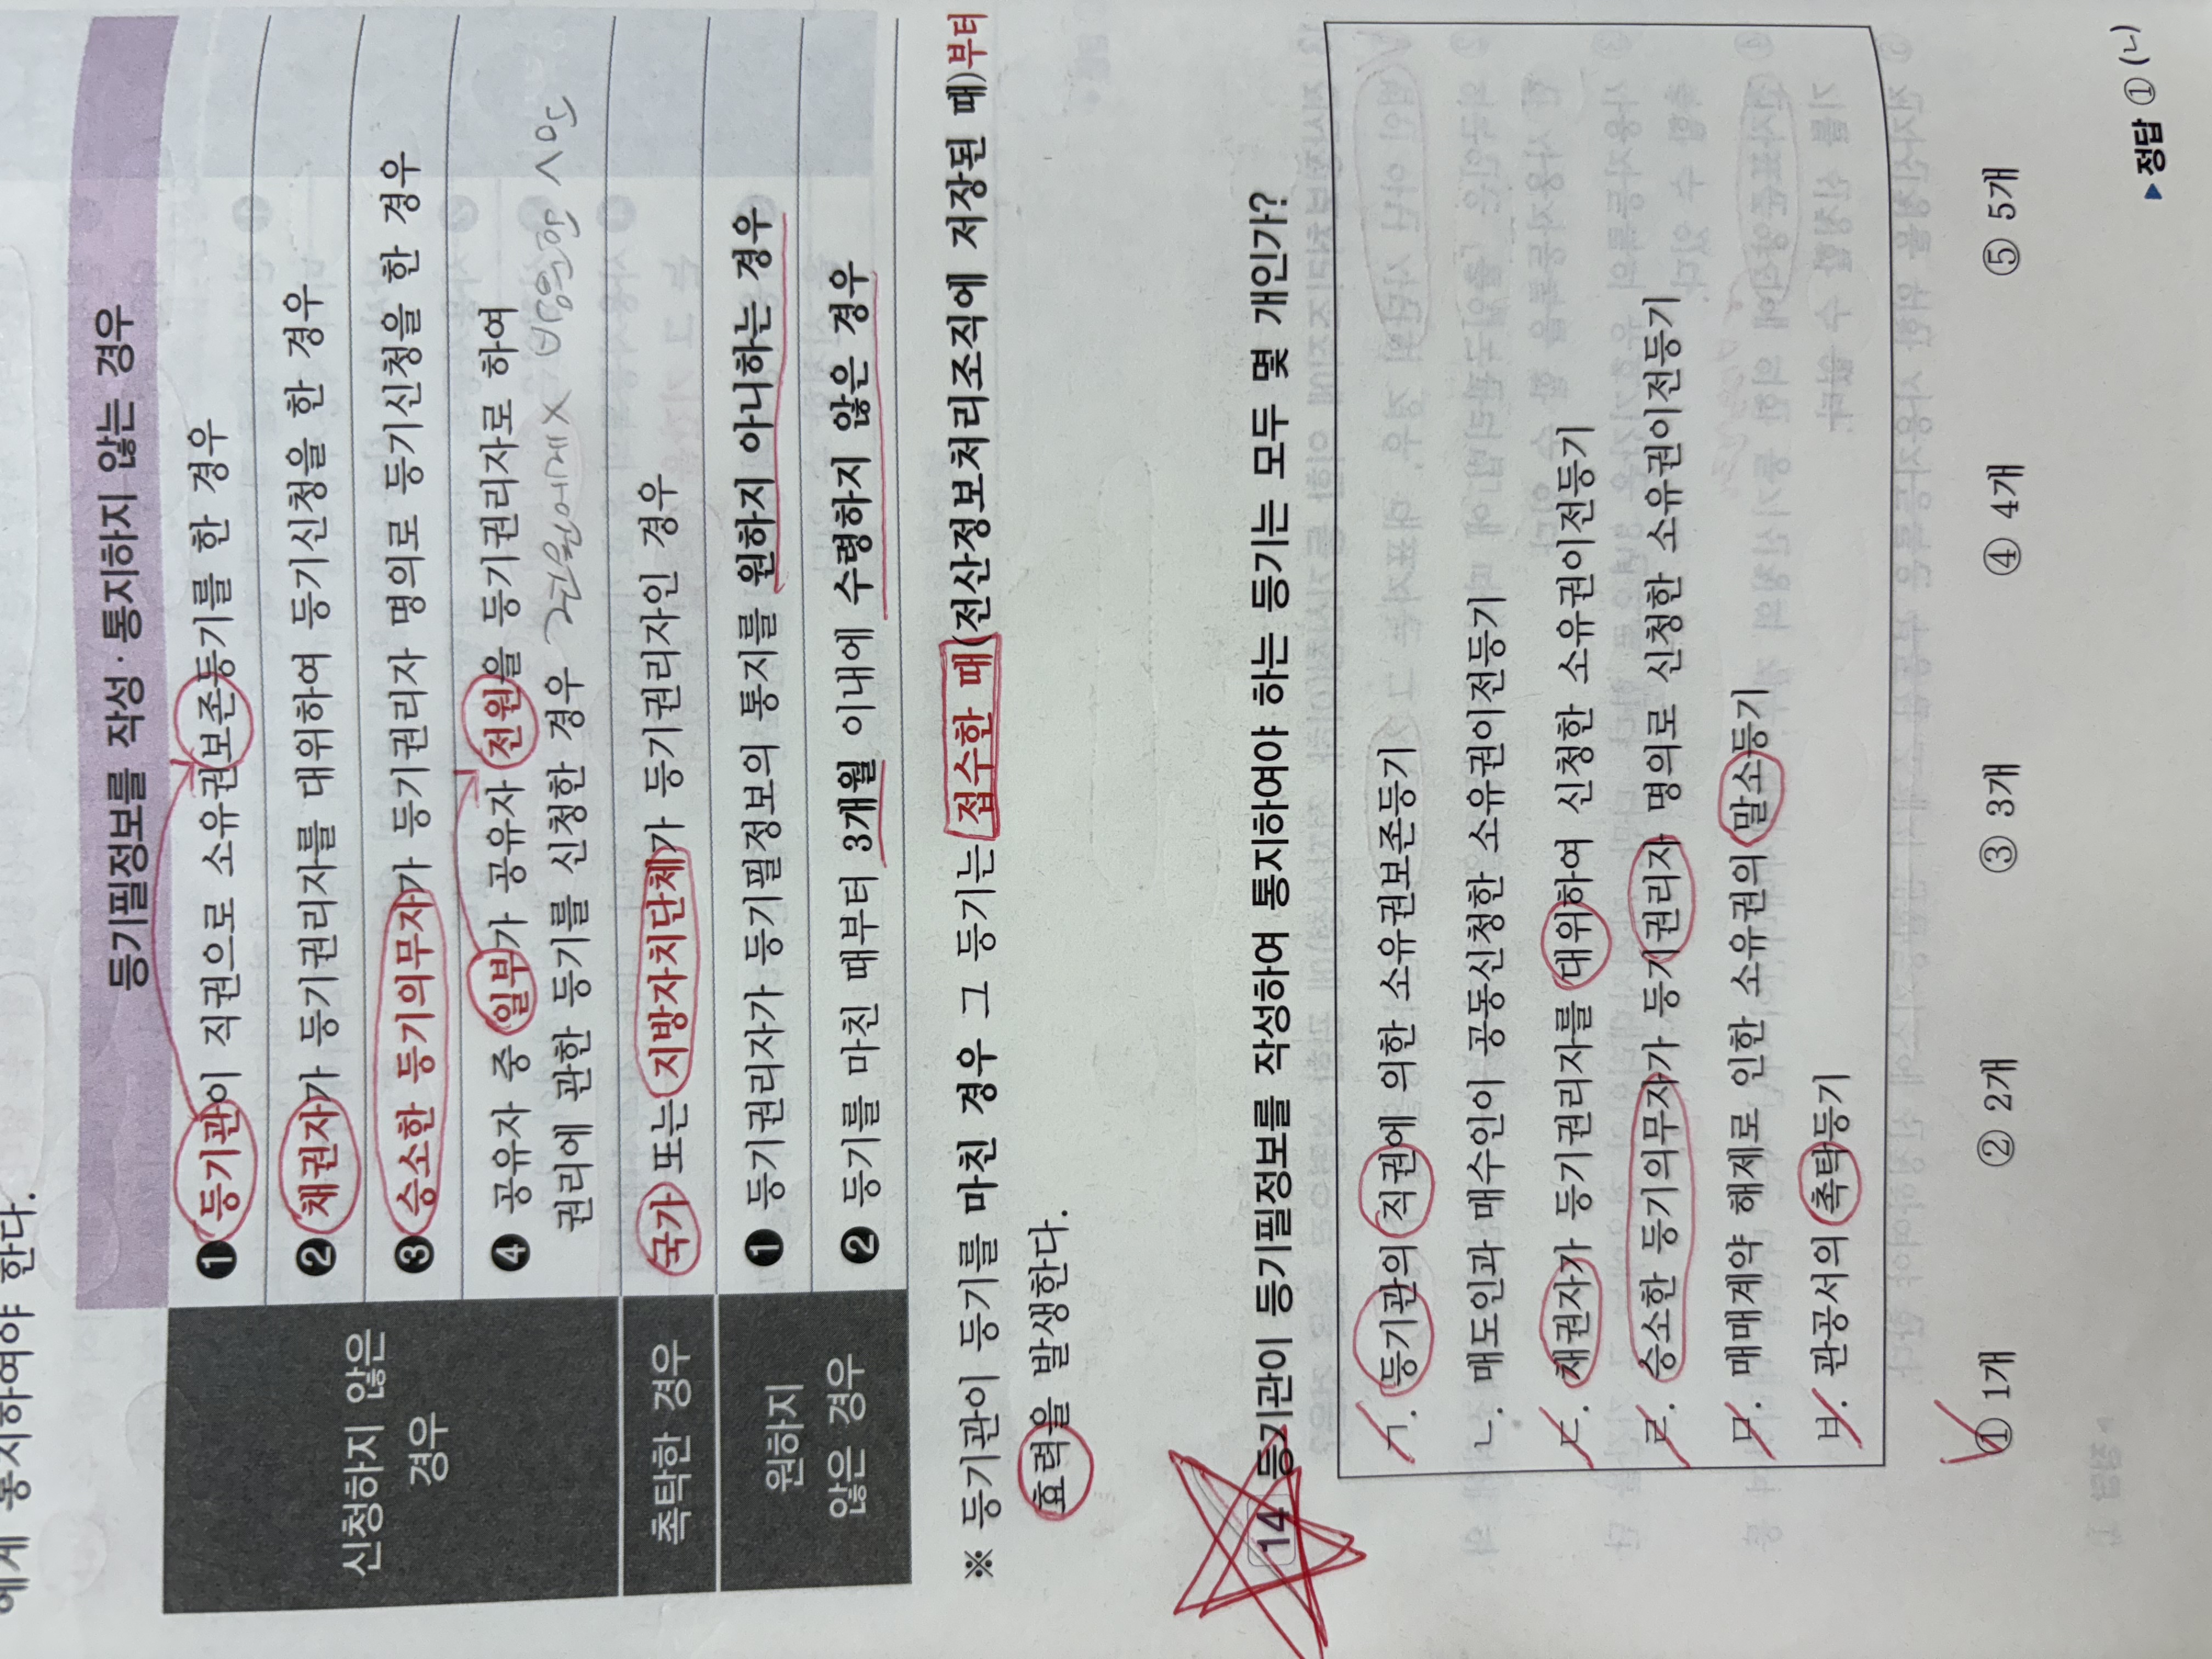 에게 통지하여야 한다.
등기필정보를 작성·통지하지 않는 경우
신청하지 않은
경우
❶ 등기관이 직권으로 소유권보존등기를 한 경우
❷ 채권자가 등기권리자를 대위하여 등기신청을 한 경우
❸ 승소한 등기의무자가 등기권리자 명의로 등기신청을 한 경우
❹ 공유자 중 일부가 공유자 전원을 등기권리자로 하여
권리에 관한 등기를 신청한 경우
촉탁한 경우
국가 또는 지방자치단체가 등기권리자인 경우
원하지
않은 경우
❶ 등기권리자가 등기필정보의 통지를 원하지 아니하는 경우
❷ 등기를 마친 때부터 3개월 이내에 수령하지 않은 경우
※ 등기관이 등기를 마친 경우 그 등기는 접수한 때(전산정보처리조직에 저장된 때)부터
효력을 발생한다.
14 등기관이 등기필정보를 작성하여 통지하여야 하는 등기는 모두 몇 개인가?
ㄱ. 등기관의 직권에 의한 소유권보존등기
ㄴ. 매도인과 매수인이 공동신청한 소유권이전등기
ㄷ. 채권자가 등기권리자를 대위하여 신청한 소유권이전등기
ㄹ. 승소한 등기의무자가 등기권리자 명의로 신청한 소유권이전등기
ㅁ. 매매계약 해제로 인한 소유권의 말소등기
ㅂ. 관공서의 촉탁등기
① 1개 ② 2개 ③ 3개 ④ 4개 ⑤ 5개
▶ 정답 ① (ㄴ)